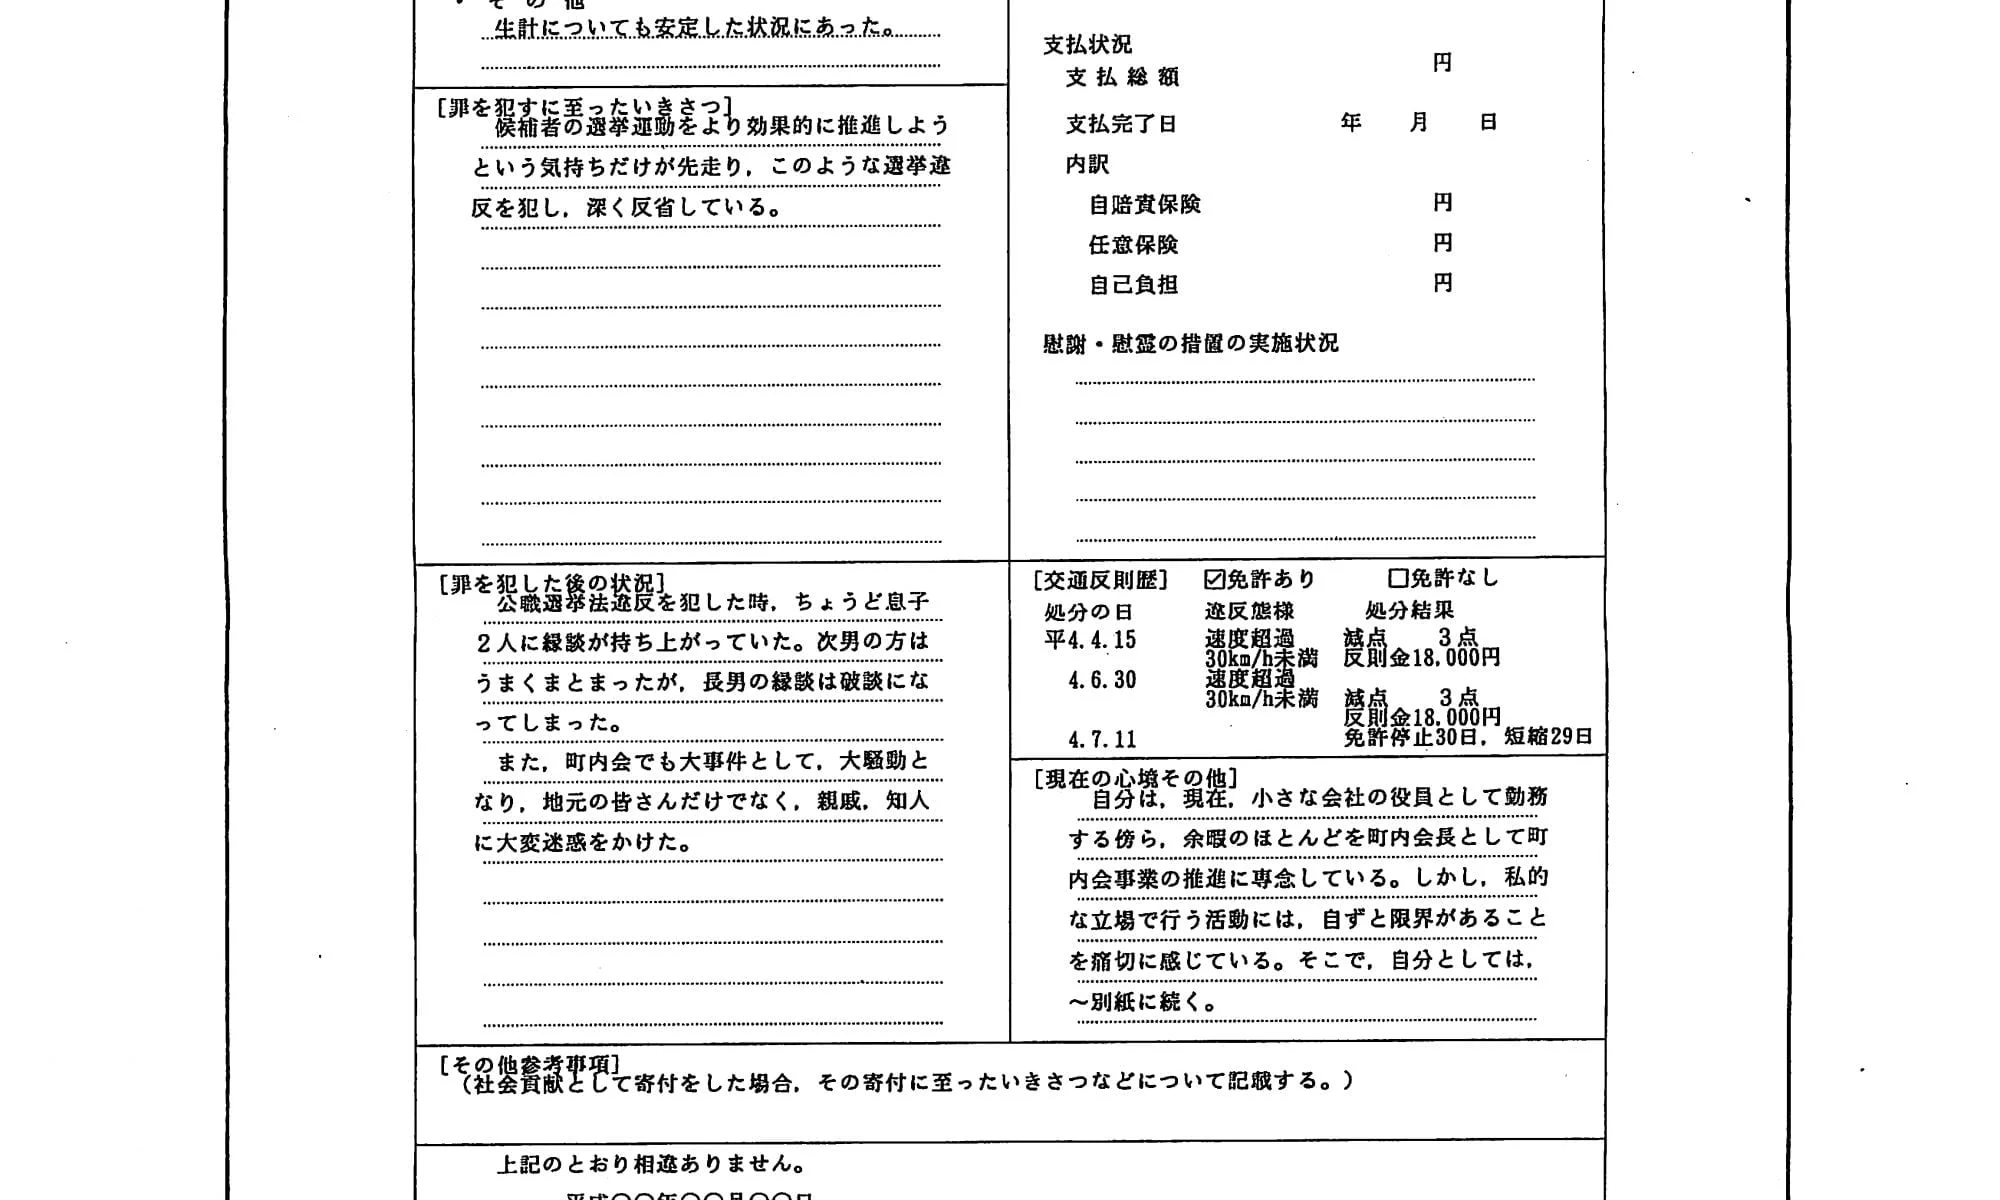 ・ そ の 他
生計についても安定した状況にあった。
[罪を犯すに至ったいきさつ]
候補者の選挙運動をより効果的に推進しよう
という気持ちだけが先走り，このような選挙違
反を犯し，深く反省している。
[罪を犯した後の状況]
公職選挙法違反を犯した時，ちょうど息子
２人に縁談が持ち上がっていた。次男の方は
うまくまとまったが，長男の縁談は破談にな
ってしまった。
また，町内会でも大事件として，大騒動と
なり，地元の皆さんだけでなく，親戚，知人
に大変迷惑をかけた。
支払状況
支 払 総 額 円
支払完了日 年 月 日
内訳
自賠責保険 円
任意保険 円
自己負担 円
慰謝・慰霊の措置の実施状況
[交通反則歴] ☑免許あり □免許なし
処分の日 違反態様 処分結果
平4.4.15 速度超過 減点 ３点
30km/h未満 反則金18,000円
4.6.30 速度超過
30km/h未満 減点 ３点
反則金18,000円
4.7.11 免許停止30日，短縮29日
[現在の心境その他]
自分は，現在，小さな会社の役員として勤務
する傍ら，余暇のほとんどを町内会長として町
内会事業の推進に専念している。しかし，私的
な立場で行う活動には，自ずと限界があること
を痛切に感じている。そこで，自分としては，
～別紙に続く。
[その他参考事項]
（社会貢献として寄付をした場合，その寄付に至ったいきさつなどについて記載する。）
上記のとおり相違ありません。
平成○○年○○月○○日